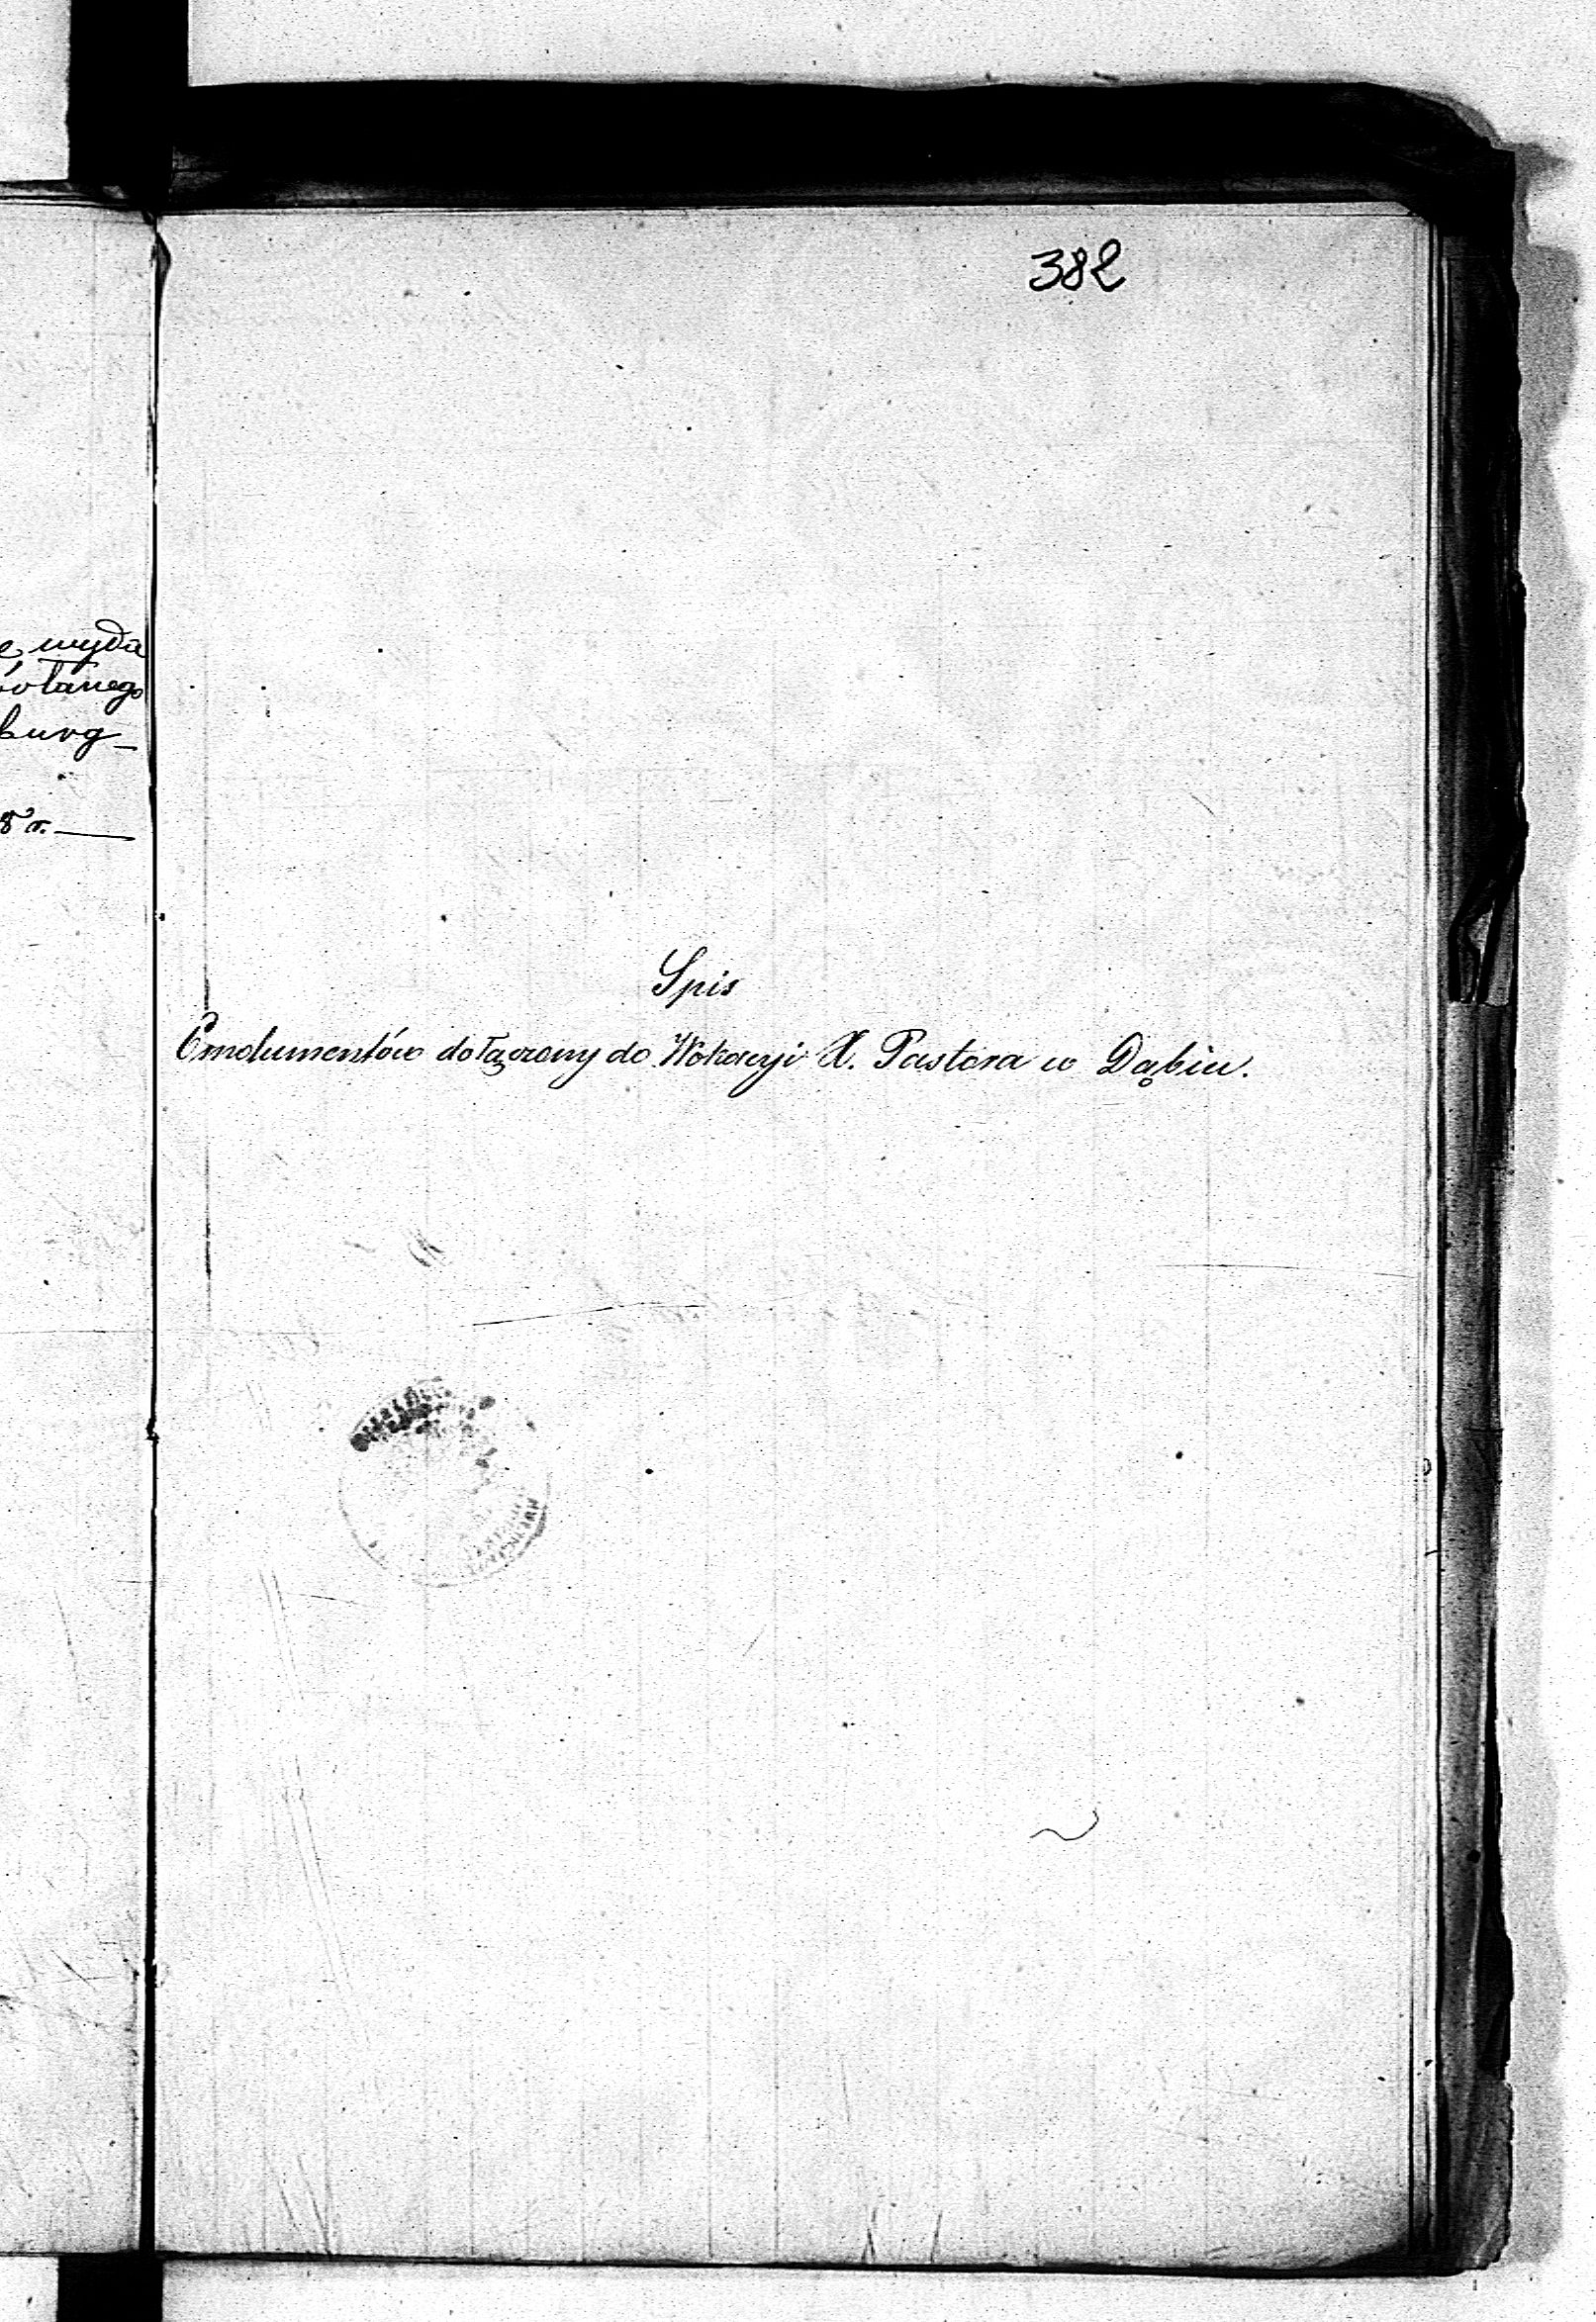 382
wyda
burg
Spis
Emolumentów dołączony do Wokacyi X. Pastora w Dąbiu.